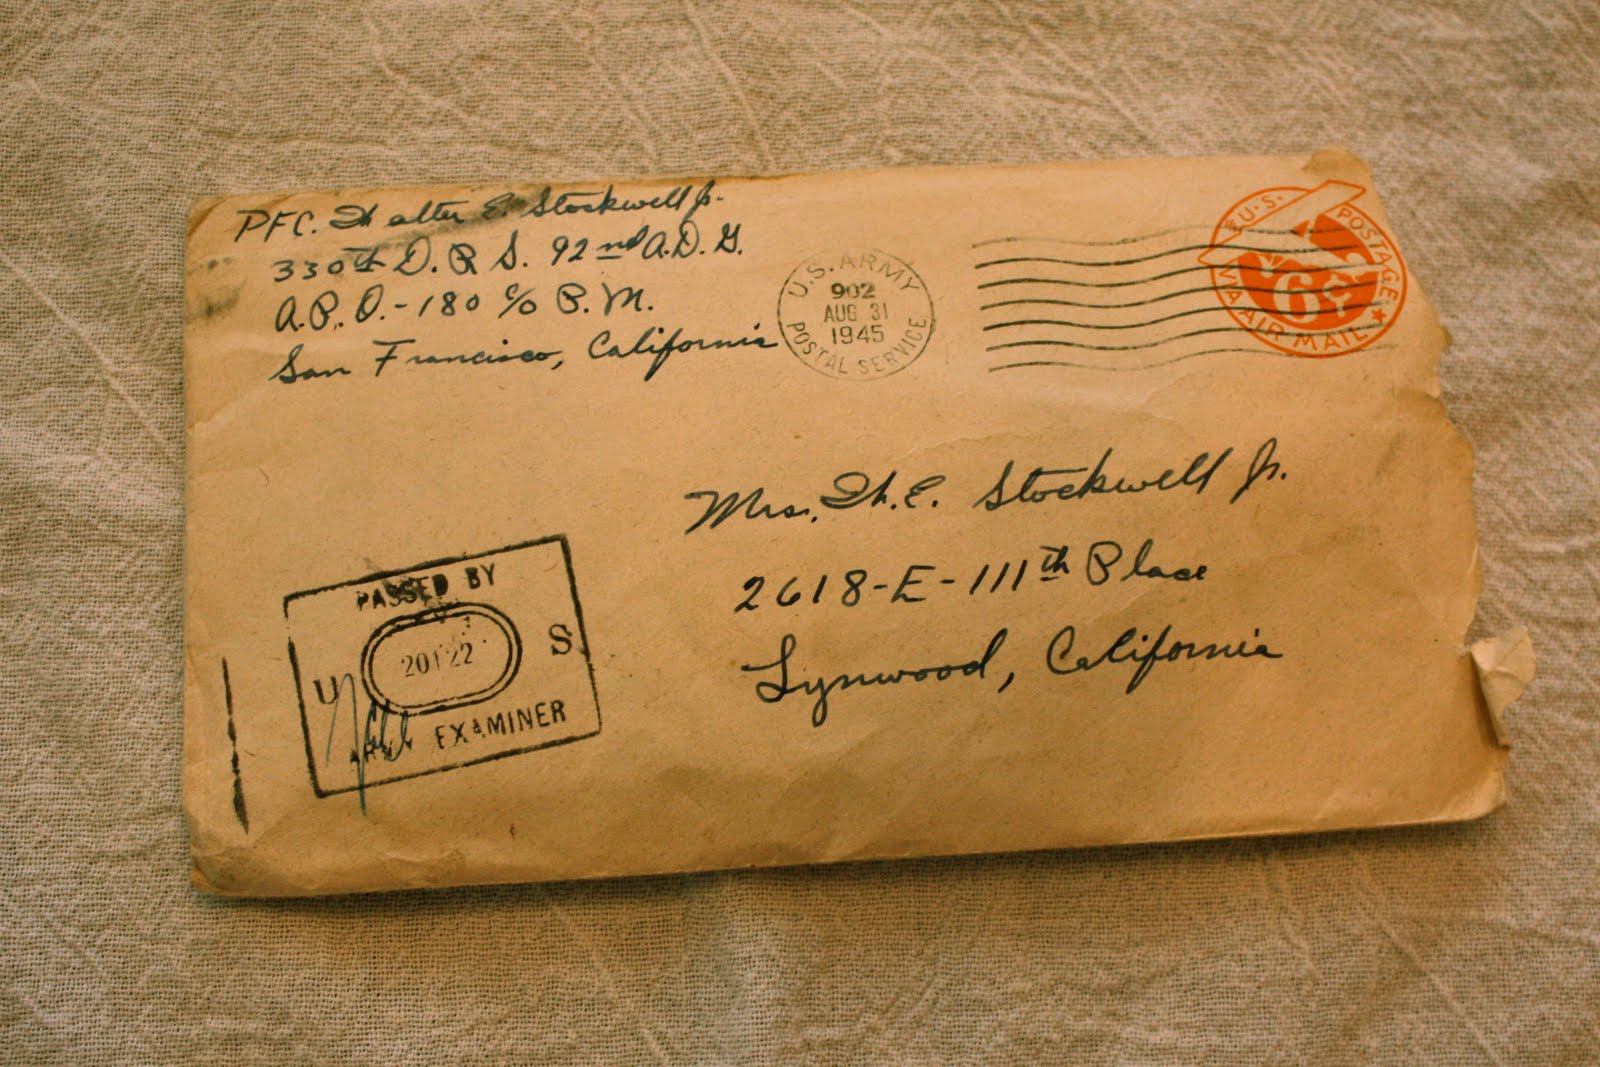 PFC. Walter E. Stockwell Jr.
330th D.R S. 92nd A.D.G.
A.P.O.-180 c/o P.M.
San Francisco, California
U.S. ARMY
902
AUG 31
1945
POSTAL SERVICE
U.S. POSTAGE
6¢
VIA AIR MAIL
Mrs. W.E. Stockwell Jr.
2618-E-111th Place
Lynwood, California
PASSED BY
U 20122 S
ARMY EXAMINER